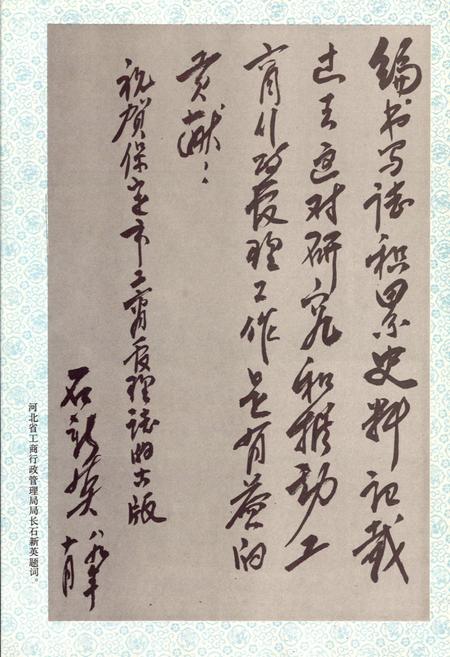 编书写志积累史料记载
过去这对研究和推动工
商行政管理工作是有益的
贡献:
祝贺保定市工商管理志的出版
石新英
八九年
十月
河北省工商行政管理局局长石新英题词。